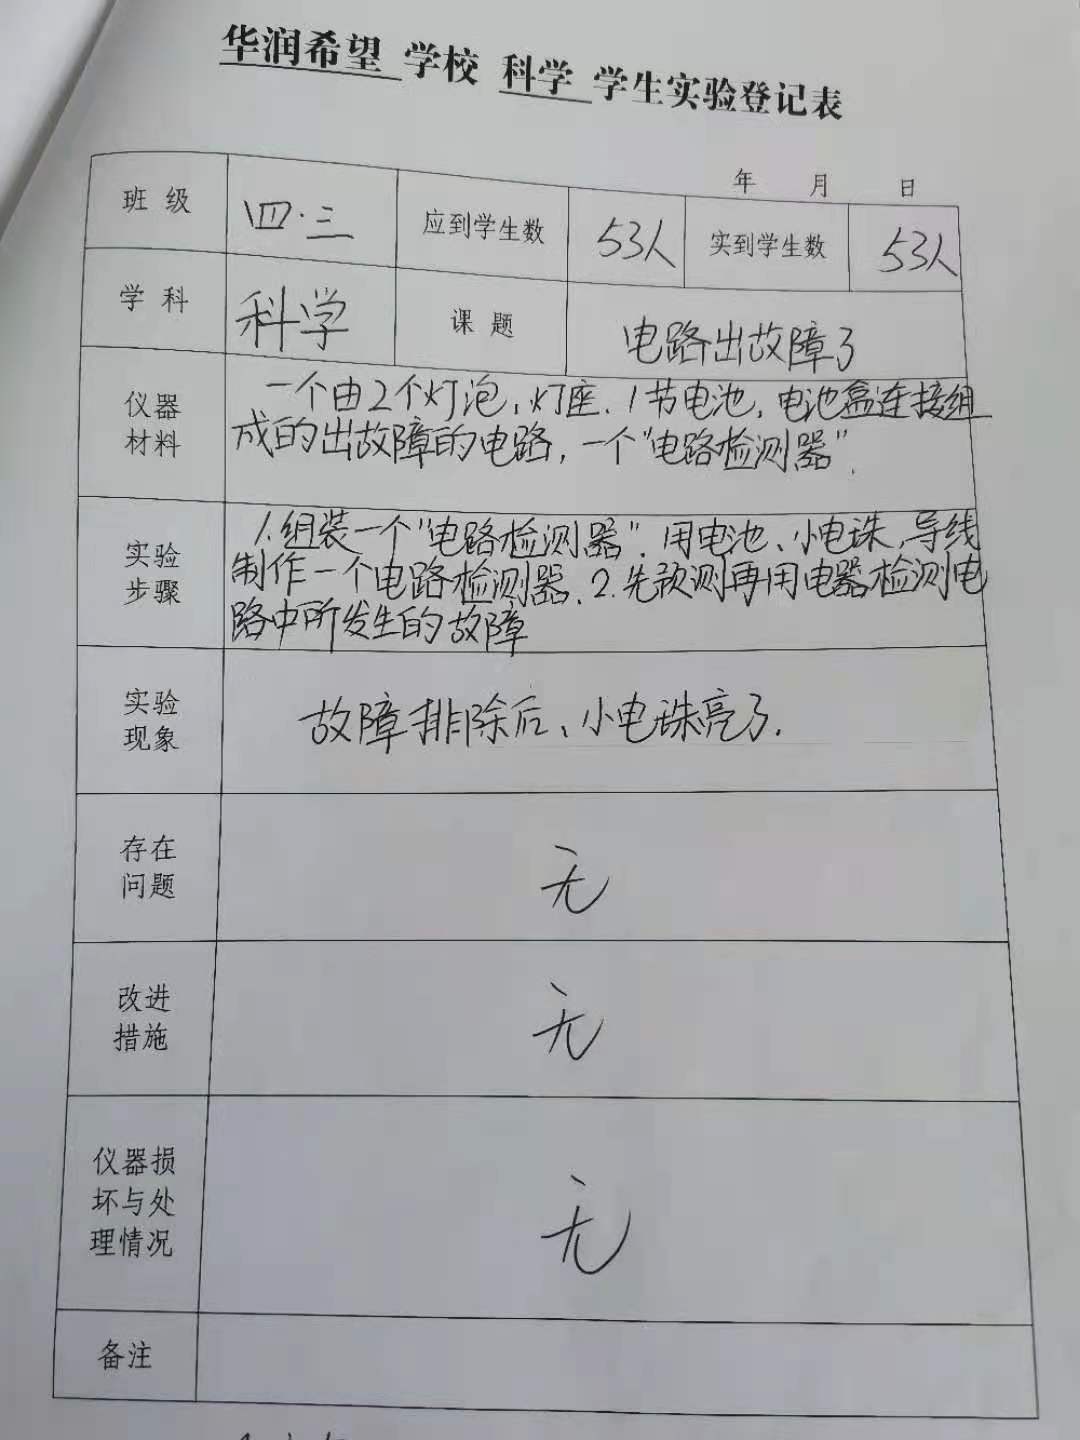 华润希望 学校 科学 学生实验登记表
年 月 日
班级 四·三 应到学生数 53人 实到学生数 53人
学科 科学 课题 电路出故障了
仪器
材料
一个由2个灯泡,灯座.1节电池,电池盒连接组
成的出故障的电路,一个"电路检测器".
实验
步骤
1.组装一个"电路检测器".用电池、小电珠,导线
制作一个电路检测器.2.先预测再用电器检测电
路中所发生的故障
实验
现象
故障排除后、小电珠亮了.
存在
问题
无
改进
措施
无
仪器损
坏与处
理情况
无
备注